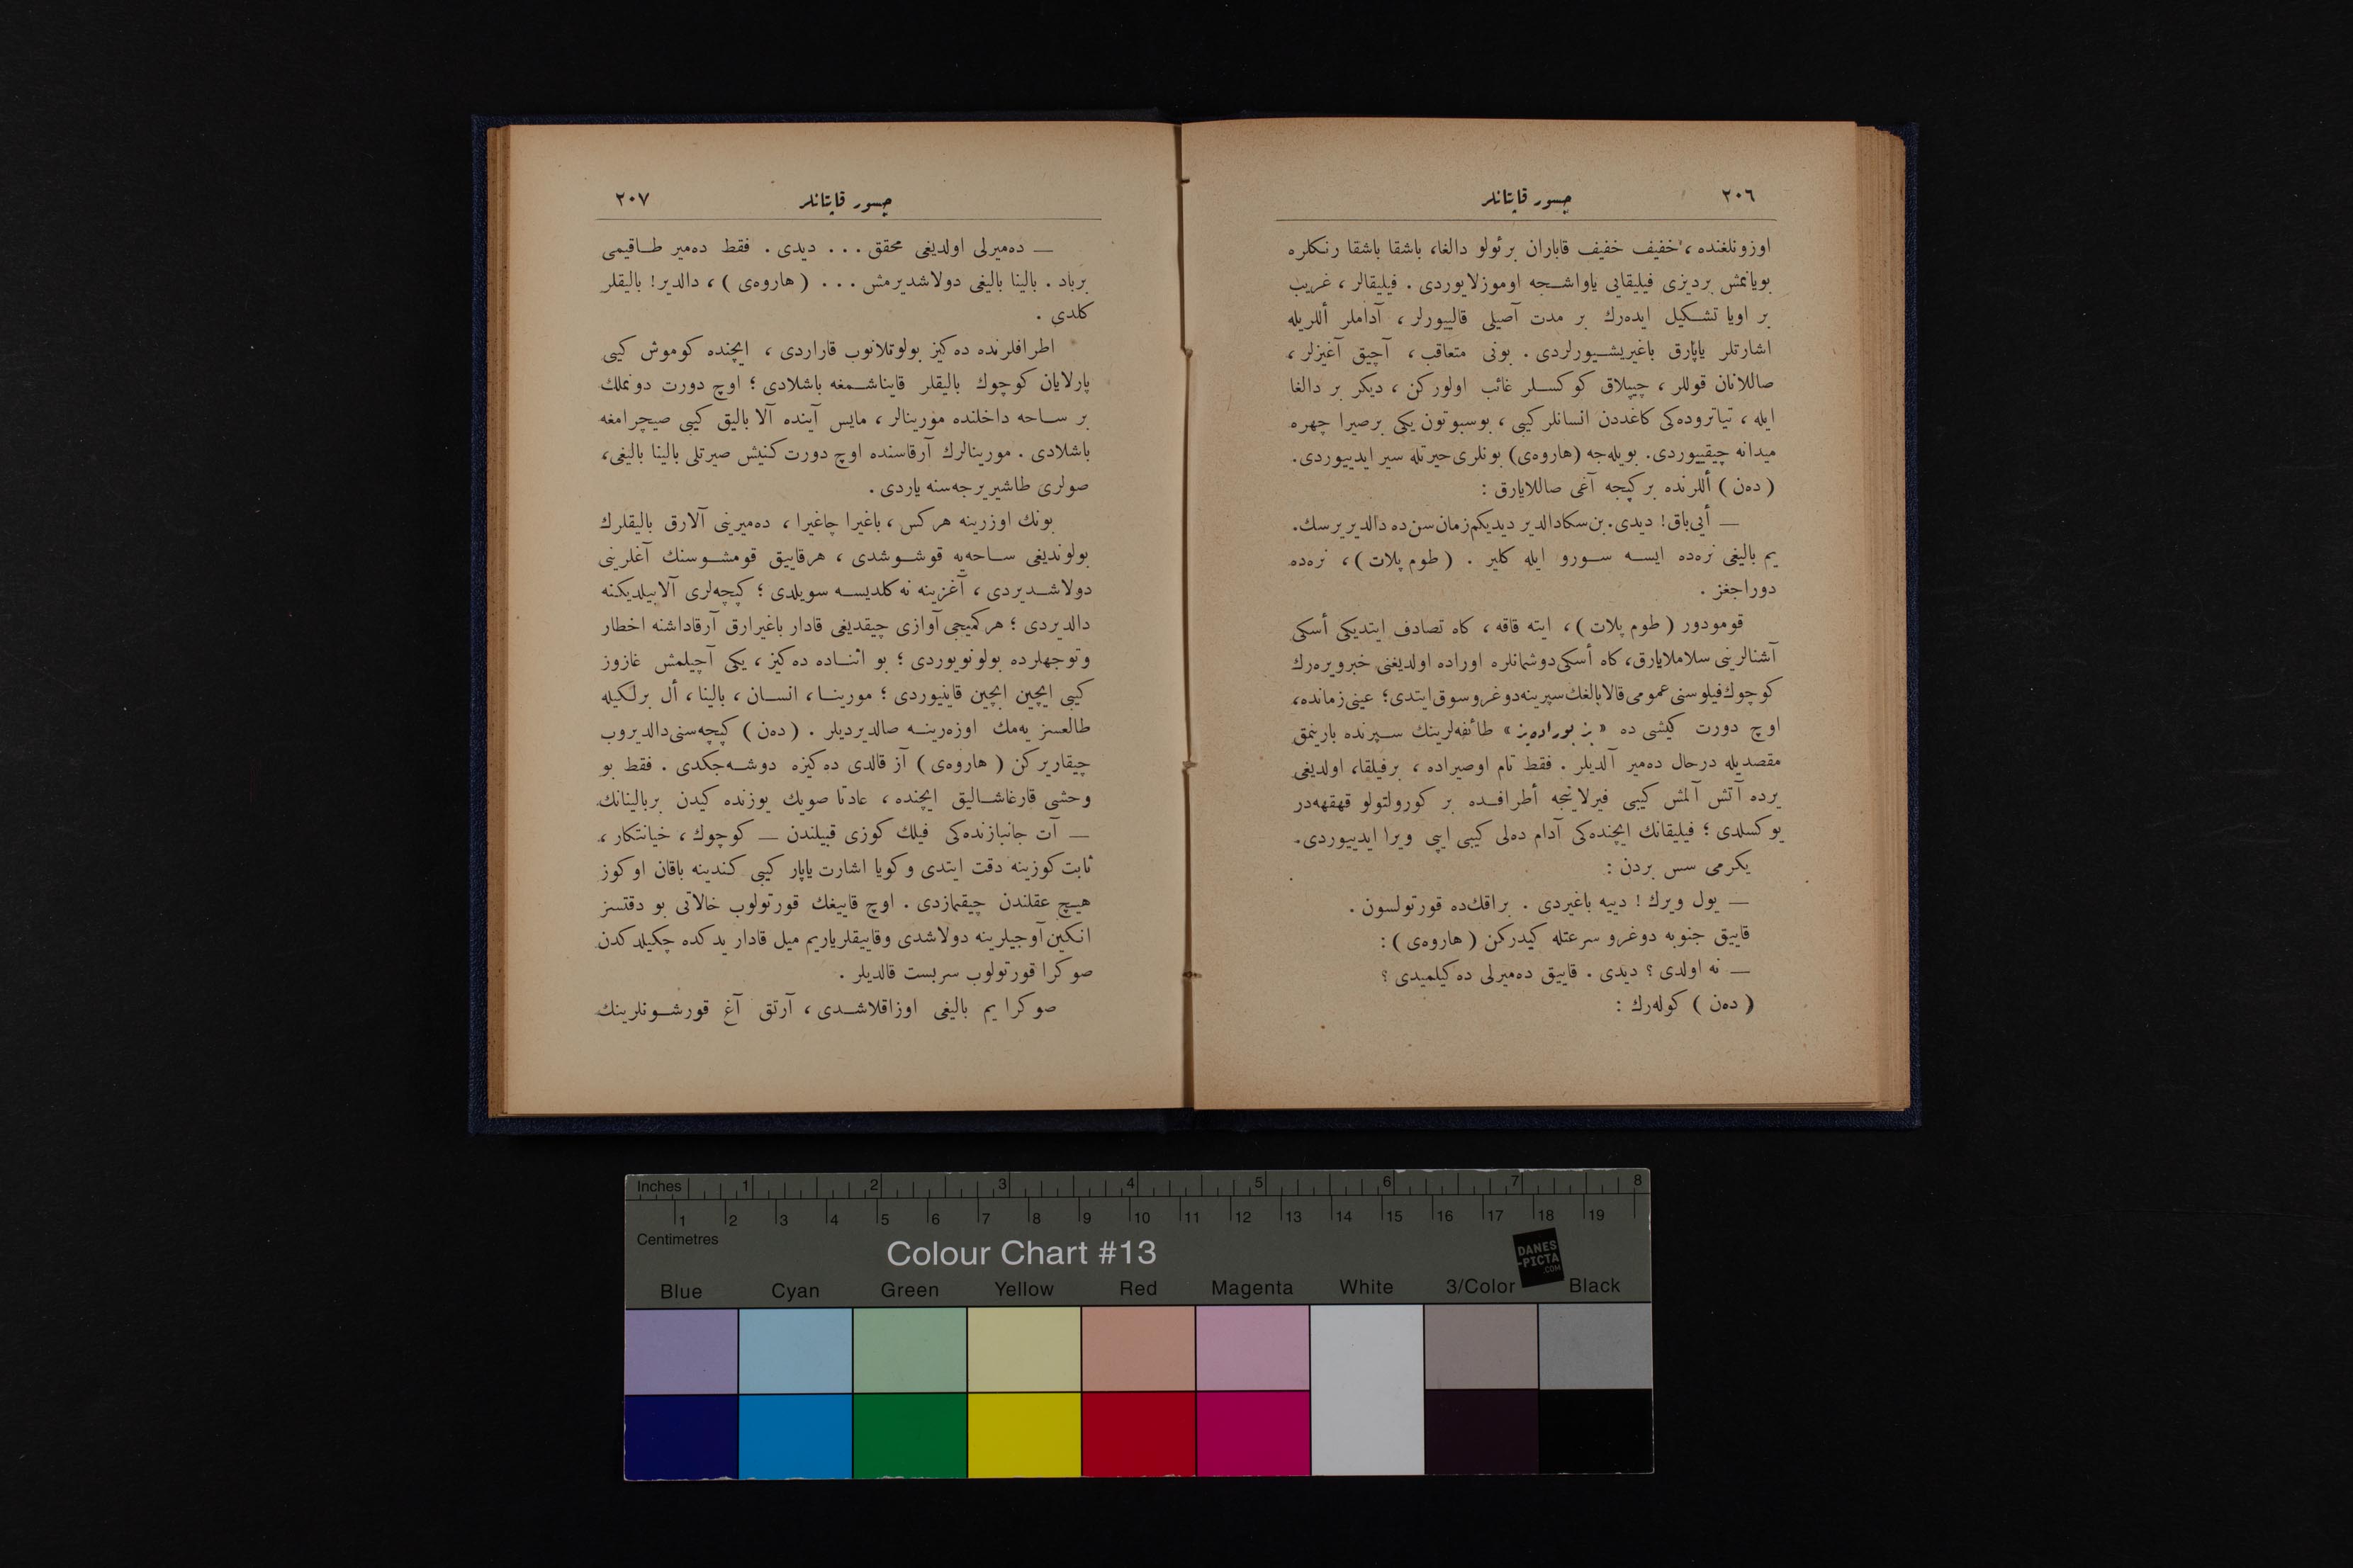 ٢٠٦
جسور قاپتانلر
اوزونلغنده ، خفیف خفیف قاباران برئولو دالغا، باشقا باشقا رنكلره
بویانمش بردیزی فیلیقایی یاواشجه اوموزلایوردی . فیلیقالر ، غریب
بر اویا تشكیل ایده‌رك بر مدت آصیلی قالییورلر ، آداملر أللریله
اشارتلر یاپارق باغیریشیورلردی . بونی متعاقب ، آچیق آغیزلر ،
صاللانان قوللر ، چیپلاق كوكسلر غائب اولوركن ، دیكر بر دالغا
ایله ، تیاتروده‌كی كاغددن انسانلر كیبی ، بوسبوتون یكی برصیرا چهره
میدانه چیقییوردی. بویله‌جه (هاروه‌ی) بونلری حیرتله سیر ایدییوردی.
( ده‌ن ) أللرنده بر كپجه آغی صاللایارق :
— أیی باق! دیدی. بن سكا دالدیر دیدیكم زمان سن ده دالدیریرسك.
یم بالیغی نره‌ده ایسه سورو ایله كلیر . ( طوم پلات ) ، نره‌ده
دوراجغز .
قومودور ( طوم پلات ) ، ایته قاقه ، كاه تصادف ایتدیكی أسكی
آشنالرینی سلاملایارق، كاه أسكی دوشمانلره اوراده اولدیغنی خبرویره‌رك
كوچوك فیلوسنی عمومی قالابالغك سپرینه دوغرو سوق ایتدی؛ عینی زمانده،
اوچ دورت كیشی ده « بز بوراده‌یز » طائفه‌لرینك سپرنده بارینمق
مقصدیله درحال ده‌میر آلدیلر . فقط تام اوصیراده ، برفیلقا، اولدیغی
یرده آتش آلمش كیبی فیرلاینجه أطرافده بر كورولتولو قهقهه‌در
یوكسلدی ؛ فیلیقانك ایچنده‌كی آدام ده‌لی كیبی ایپی ویرا ایدییوردی.
یكرمی سس بردن :
— یول ویرك ! دییه باغیردی . براقك‌ده قورتولسون .
قاییق جنوبه دوغرو سرعتله كیدركن ( هاروه‌ی ) :
— نه اولدی ؟ دیدی . قاییق ده‌میرلی ده‌كیلمیدی ؟
( ده‌ن ) كوله‌رك :
جسور قاپتانلر
٢٠٧
— ده‌میرلی اولدیغی محقق ... دیدی . فقط ده‌میر طاقیمی
برباد . بالینا بالیغی دولاشدیرمش ... ( هاروه‌ی ) ، دالدیر! بالیقلر
كلدی .
اطرافلرنده ده‌كیز بولوتلانوب قاراردی ، ایچنده كوموش كیبی
پارلایان كوچوك بالیقلر قایناشمغه باشلادی ؛ اوچ دورت دونملك
بر ساحه داخلنده مورینالر ، مایس آینده آلا بالیق كیبی صیچرامغه
باشلادی . مورینالرك آرقاسنده اوچ دورت كنیش صیرتلی بالینا بالیغی،
صولری طاشیریرجه‌سنه یاردی .
بونك اوزرینه هركس ، باغیرا چاغیرا ، ده‌میرینی آلارق بالیقلرك
بولوندیغی ساحه‌یه قوشوشدی ، هرقاییق قومشوسنك آغلرینی
دولاشدیردی ، آغزینه نه كلدیسه سویلدی ؛ كپچه‌لری آلابیلدیكنه
دالدیردی ؛ هركمیجی آوازی چیقدیغی قادار باغیرارق آرقاداشنه اخطار
وتوجهلرده بولونویوردی ؛ بو اثناده ده‌كیز ، یكی آچیلمش غازوز
كیبی ایچین ایچین قاینیوردی ؛ مورینا ، انسان ، بالینا ، أل برلكیله
طالعسز یه‌مك اوزه‌رینه صالدیردیلر . ( ده‌ن ) كپچه‌سنی دالدیروب
چیقاریركن ( هاروه‌ی ) آز قالدی ده‌كیزه دوشه‌جكدی . فقط بو
وحشی قارغاشالیق ایچنده ، عادتا صویك یوزنده كیدن بربالینانك
— آت جانبازنده‌كی فیلك كوزی قبیلندن — كوچوك ، خیانتكار ،
ثابت كوزینه دقت ایتدی و كویا اشارت یاپار كیبی كندینه باقان اوكوز
هیچ عقلندن چیقمازدی . اوچ قاییغك قورتولوب خالاتی بو دقتسز
انكین آوجیلرینه دولاشدی وقاییقلریاریم میل قادار یدكده چكیلدكدن
صوكرا قورتولوب سربست قالدیلر .
صوكرا یم بالیغی اوزاقلاشدی ، آرتق آغ قورشونلرینك
Inches 1 2 3 4 5 6 7 8
1 2 3 4 5 6 7 8 9 10 11 12 13 14 15 16 17 18 19
Centimetres
Colour Chart #13
DANES
-PICTA
.COM
Blue Cyan Green Yellow Red Magenta White 3/Color Black